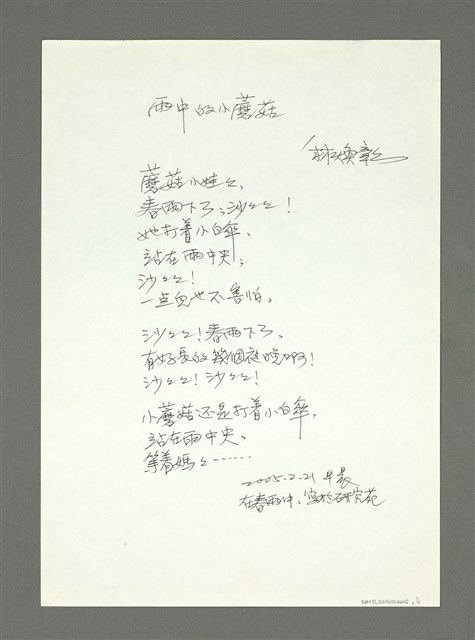 雨中的小蘑菇
林煥彰
蘑菇小娃々,
春雨下了;沙々々!
她打着小白傘、
站在雨中央;
沙々々!
一点兒也不害怕。
沙々々!春雨下了、
有好長的幾個夜晚啊!
沙々々!沙々々!
小蘑菇还是打着小白傘,
站在雨中央、
等着媽々……
2005.2.21 早晨
在春雨中、寫於研究苑